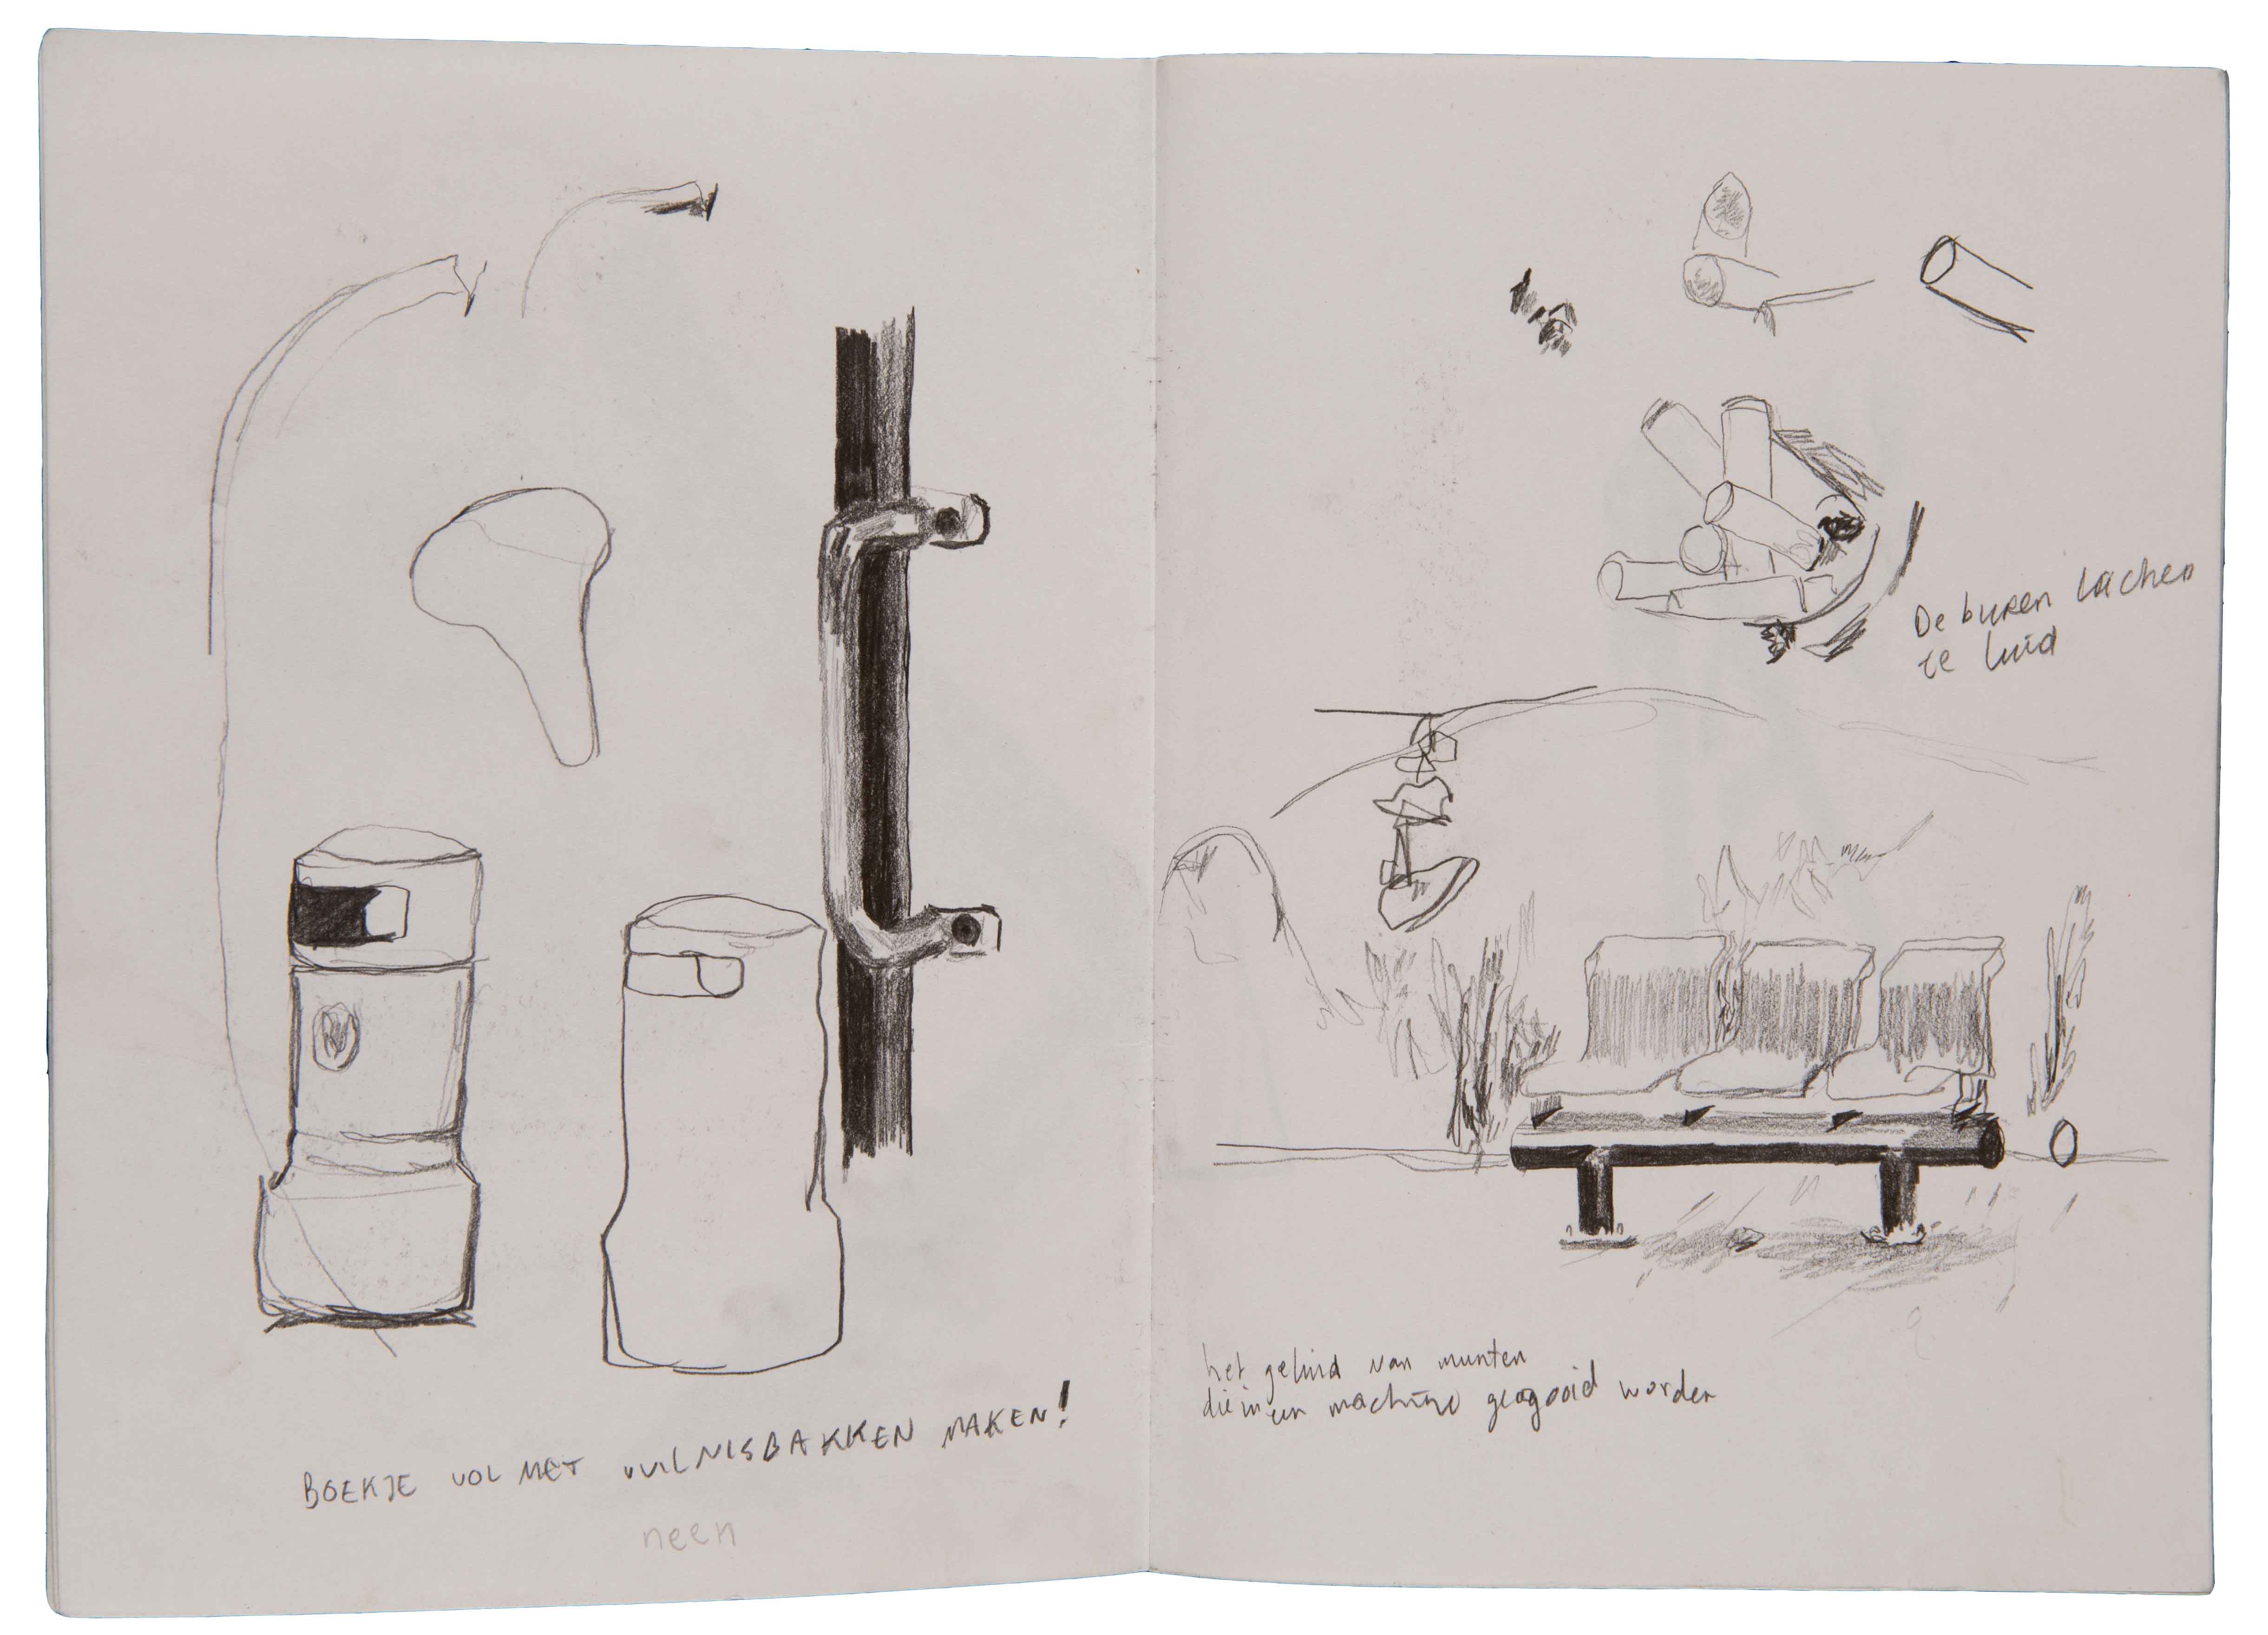 BOEKJE VOL MET VUILNISBAKKEN MAKEN!
neen
De buren lachen
te luid
het geluid van munten
die in een machine gegooid worden